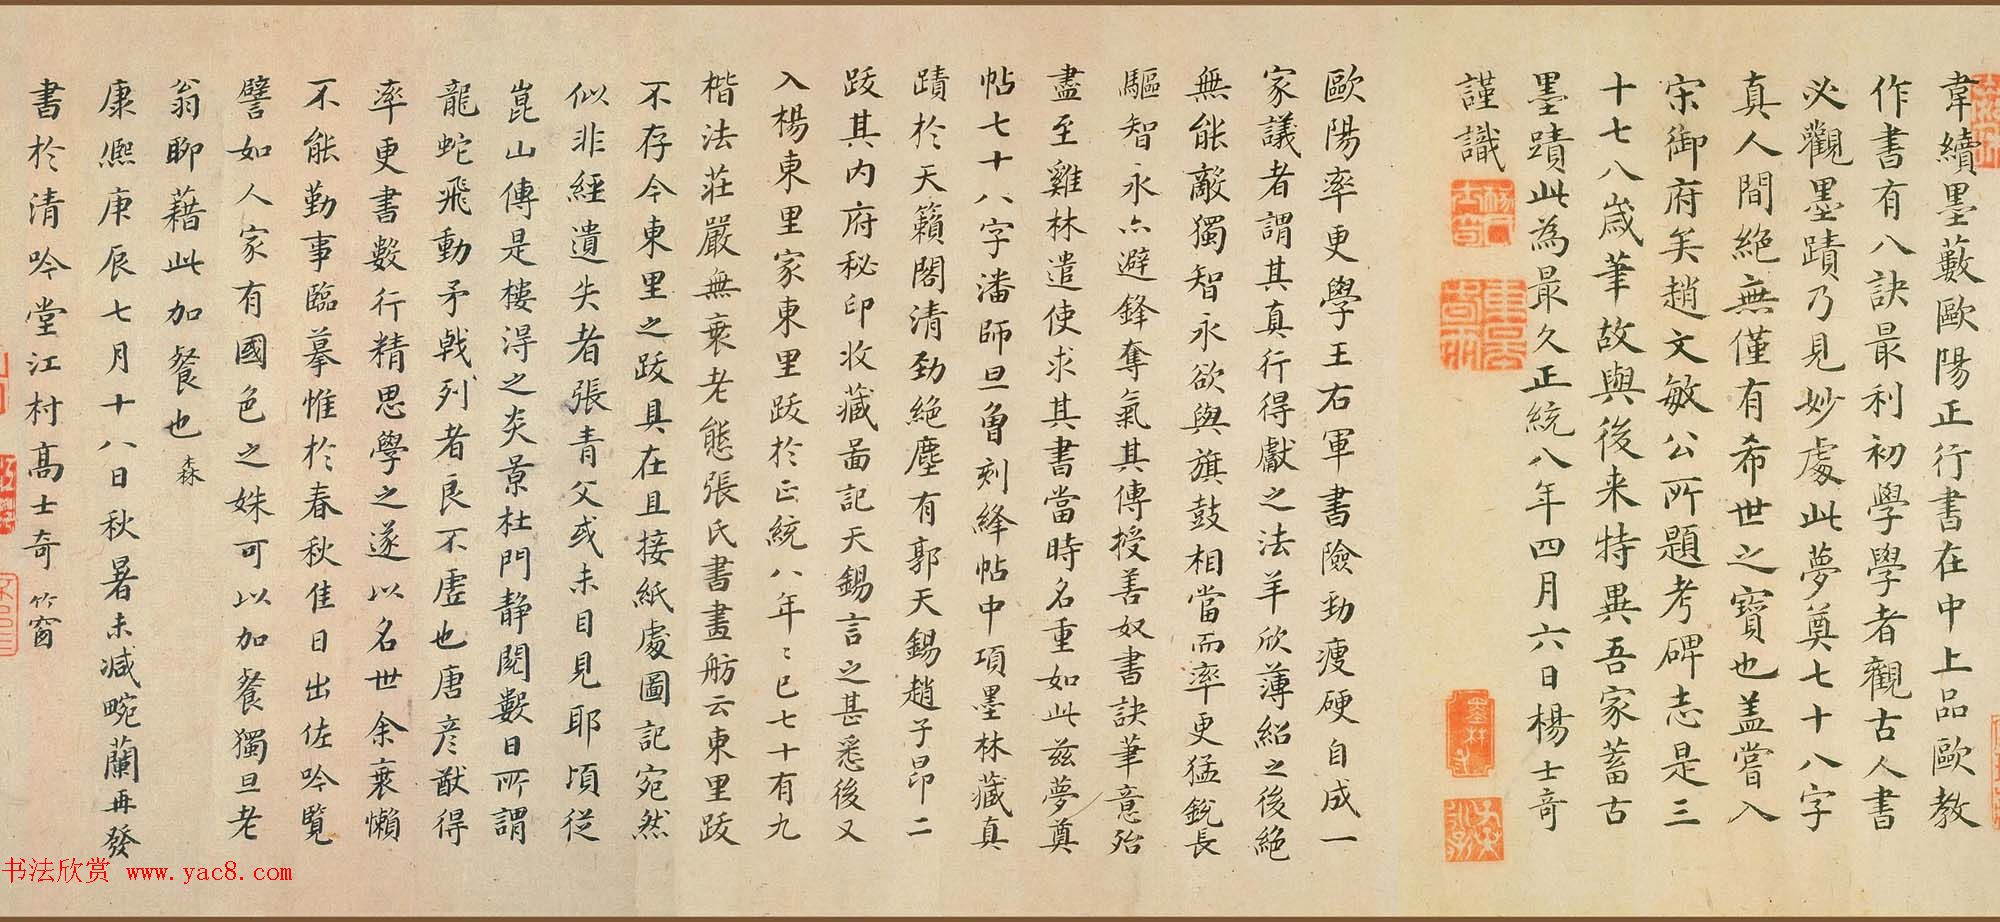 韋續墨藪歐陽正行書在中上品歐教
作書有八訣最利初學學者觀古人書
必觀墨蹟乃見妙處此夢奠七十八字
真人間絕無僅有希世之寶也蓋嘗入
宋御府矣趙文敏公所題考碑志是三
十七八歲筆故與後来特異吾家蓄古
墨蹟此為最久正統八年四月六日楊士奇
謹識
歐陽率更學王右軍書險勁瘦硬自成一
家議者謂其真行得獻之法羊欣薄紹之後絕
無能敵獨智永欲與旗鼓相當而率更猛銳長
驅智永亦避鋒奪氣其傳授善奴書訣筆意殆
盡至雞林遣使求其書當時名重如此茲夢奠
帖七十八字潘師旦曾刻絳帖中項墨林藏真
蹟於天籟閣清勁絕塵有郭天錫趙子昂二
跋其內府秘印收藏畐記天錫言之甚悉後又
入楊東里家東里跋於正統八年〻已七十有九
楷法莊嚴無衰老態張氏書畫舫云東里跋
不存今東里之跋具在且接紙處圖記宛然
似非經遺失者張青父或未目見耶頃從
崑山傳是樓淂之炎景杜門靜閱數日所謂
龍蛇飛動矛戟列者良不虛也唐彥猷得
率更書數行精思學之遂以名世余衰懶
不能勤事臨摹惟於春秋佳日出佐吟覽
譬如人家有國色之姝可以加餐獨旦老
翁聊藉此加餐也 森
康熙庚辰七月十八日秋暑未減畹蘭再發
書於清吟堂江村高士奇 竹窗
书法欣赏 www.yac8.com